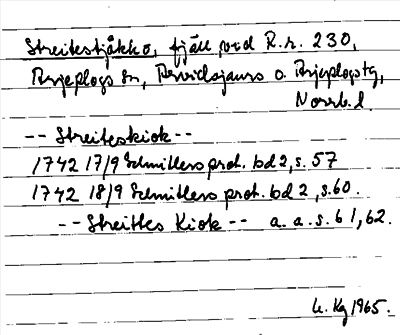 Streitestjåkko, fjäll vid R.r. 230,
Arjeplogs sn, Arvidsjaurs o. Arjeplogs tg,
Norrb. l.
-- Streiteskiok --
1742 17/9 Schnitlers prot. bd 2, s. 57
1742 18/9 Schnitlers prot. bd 2, s. 60.
-- Streittes Kiok -- a. a. s. 61, 62.
Kg 1965.